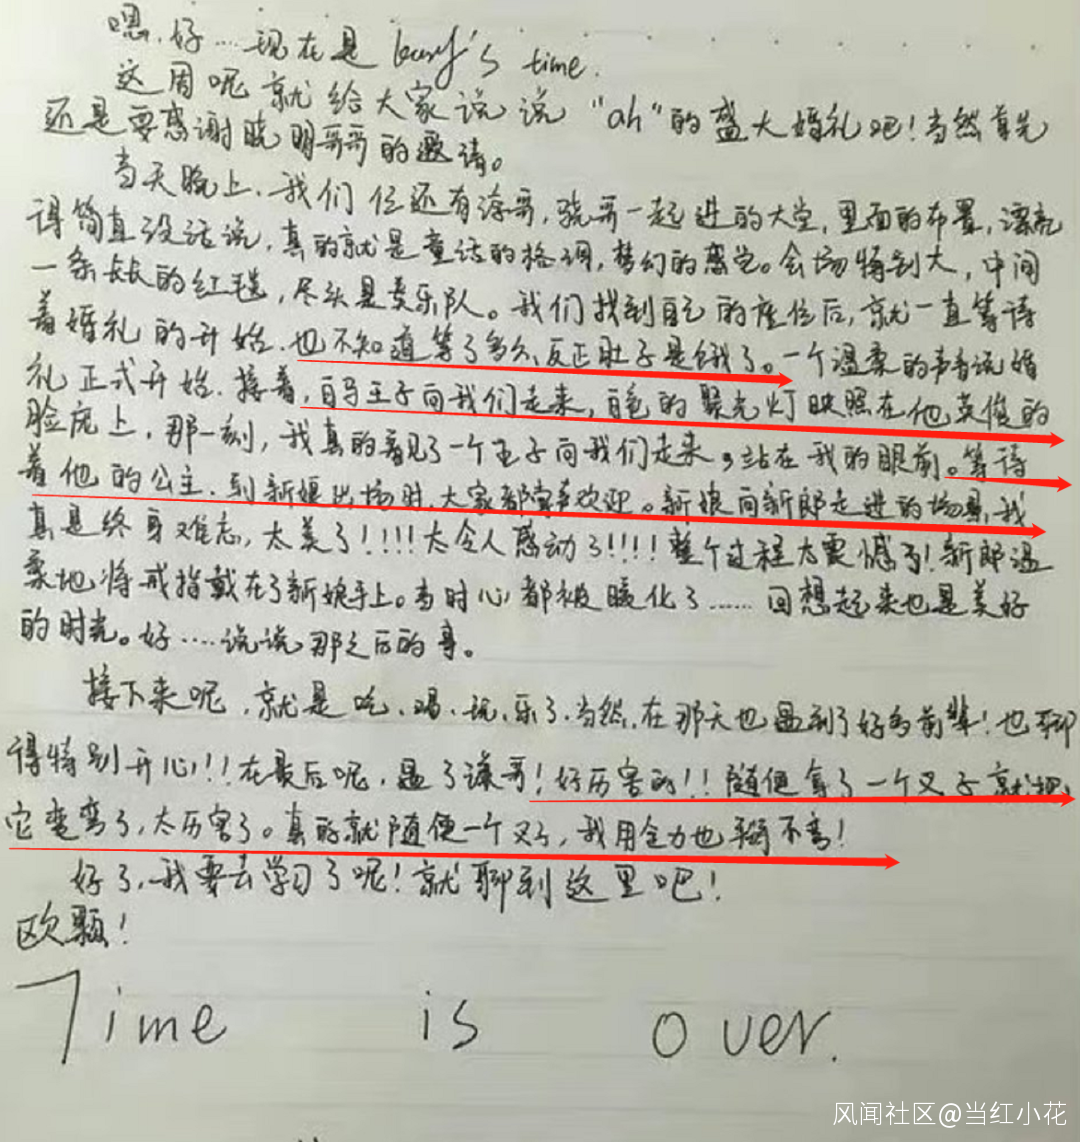 嗯.好……现在是 karry's time.
这周呢就给大家说说"ah"的盛大婚礼吧！当然首先
还是要感谢晓明哥哥的邀请。
当天晚上.我们仨还有涛哥,骁哥一起进的大堂,里面的布置,漂亮
得简直没话说,真的就是童话的格调,梦幻的感觉。会场特别大,中间
一条长长的红毯,尽头是奏乐队。我们找到自己的座位后,就一直等待
着婚礼的开始.也不知道等了多久,反正肚子是饿了。一个温柔的声音说婚
礼正式开始.接着,白马王子向我们走来,白色的聚光灯映照在他英俊的
脸庞上,那一刻,我真的看见了一个王子向我们走来,站在我的眼前。等待
着他的公主.到新娘出场时,大家都掌声欢迎。新娘向新郎走进的场景,我
真是终身难忘,太美了!!!!太令人感动了!!!!整个过程太震憾了!新郎温
柔地将戒指戴在了新娘手上。当时心都被暖化了……回想起来也是美好
的时光。好……说说那之后的事。
接下来呢,就是吃、喝、玩、乐了.当然,在那天也遇到了好多前辈!也聊
得特别开心!!在最后呢,遇了谦哥!好厉害的!!随便拿了一个叉子就把
它变弯了,太厉害了。真的就随便一个叉子,我用全力也掰不弯!
好了,我要去学习了呢!就聊到这里吧!
欧颗!
Time is over.
风闻社区@当红小花